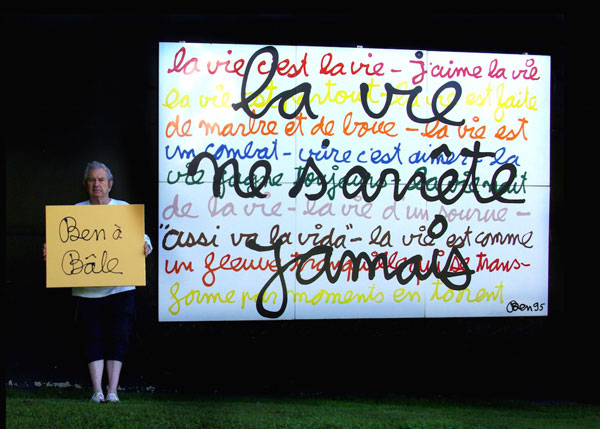 Ben à
Bâle
la vie
ne s'arrête
jamais
la vie c'est la vie - j'aime la vie
la vie est partout - la vie est faite
de marbre et de boue - la vie est
un combat - vivre c'est aimer - la
vie gagne toujours - la vie vaut
de la vie - la vie d'un sourire -
"assi va la vida" - la vie est comme
un fleuve tranquille qui se trans-
forme par moments en torrent
Ben 95